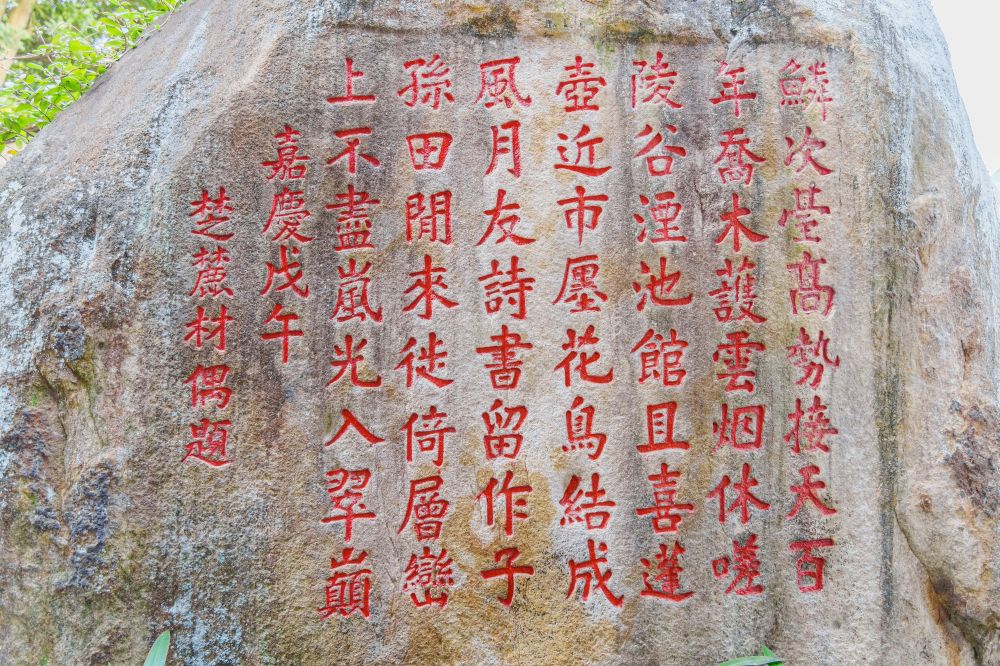 鱗次臺高勢接天百
年喬木護雲烟休嗟
陵谷湮池館且喜蓬
壺近市廛花鳥結成
風月友詩書留作子
孫田閒來徙倚層巒
上不盡嵐光入翠巔
嘉慶戊午
楚麓材偶題